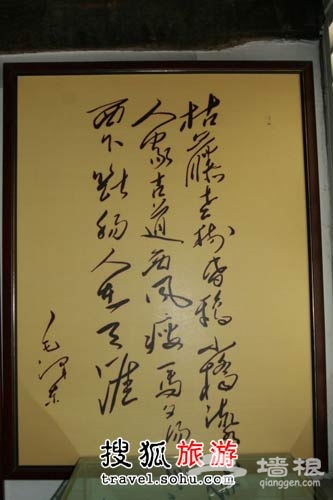 枯藤老树昏鸦小橋流水
人家古道西風瘦馬夕陽
西下断腸人在天涯
毛泽东
搜狐旅游
travel.sohu.com
墙根
qianggen.com